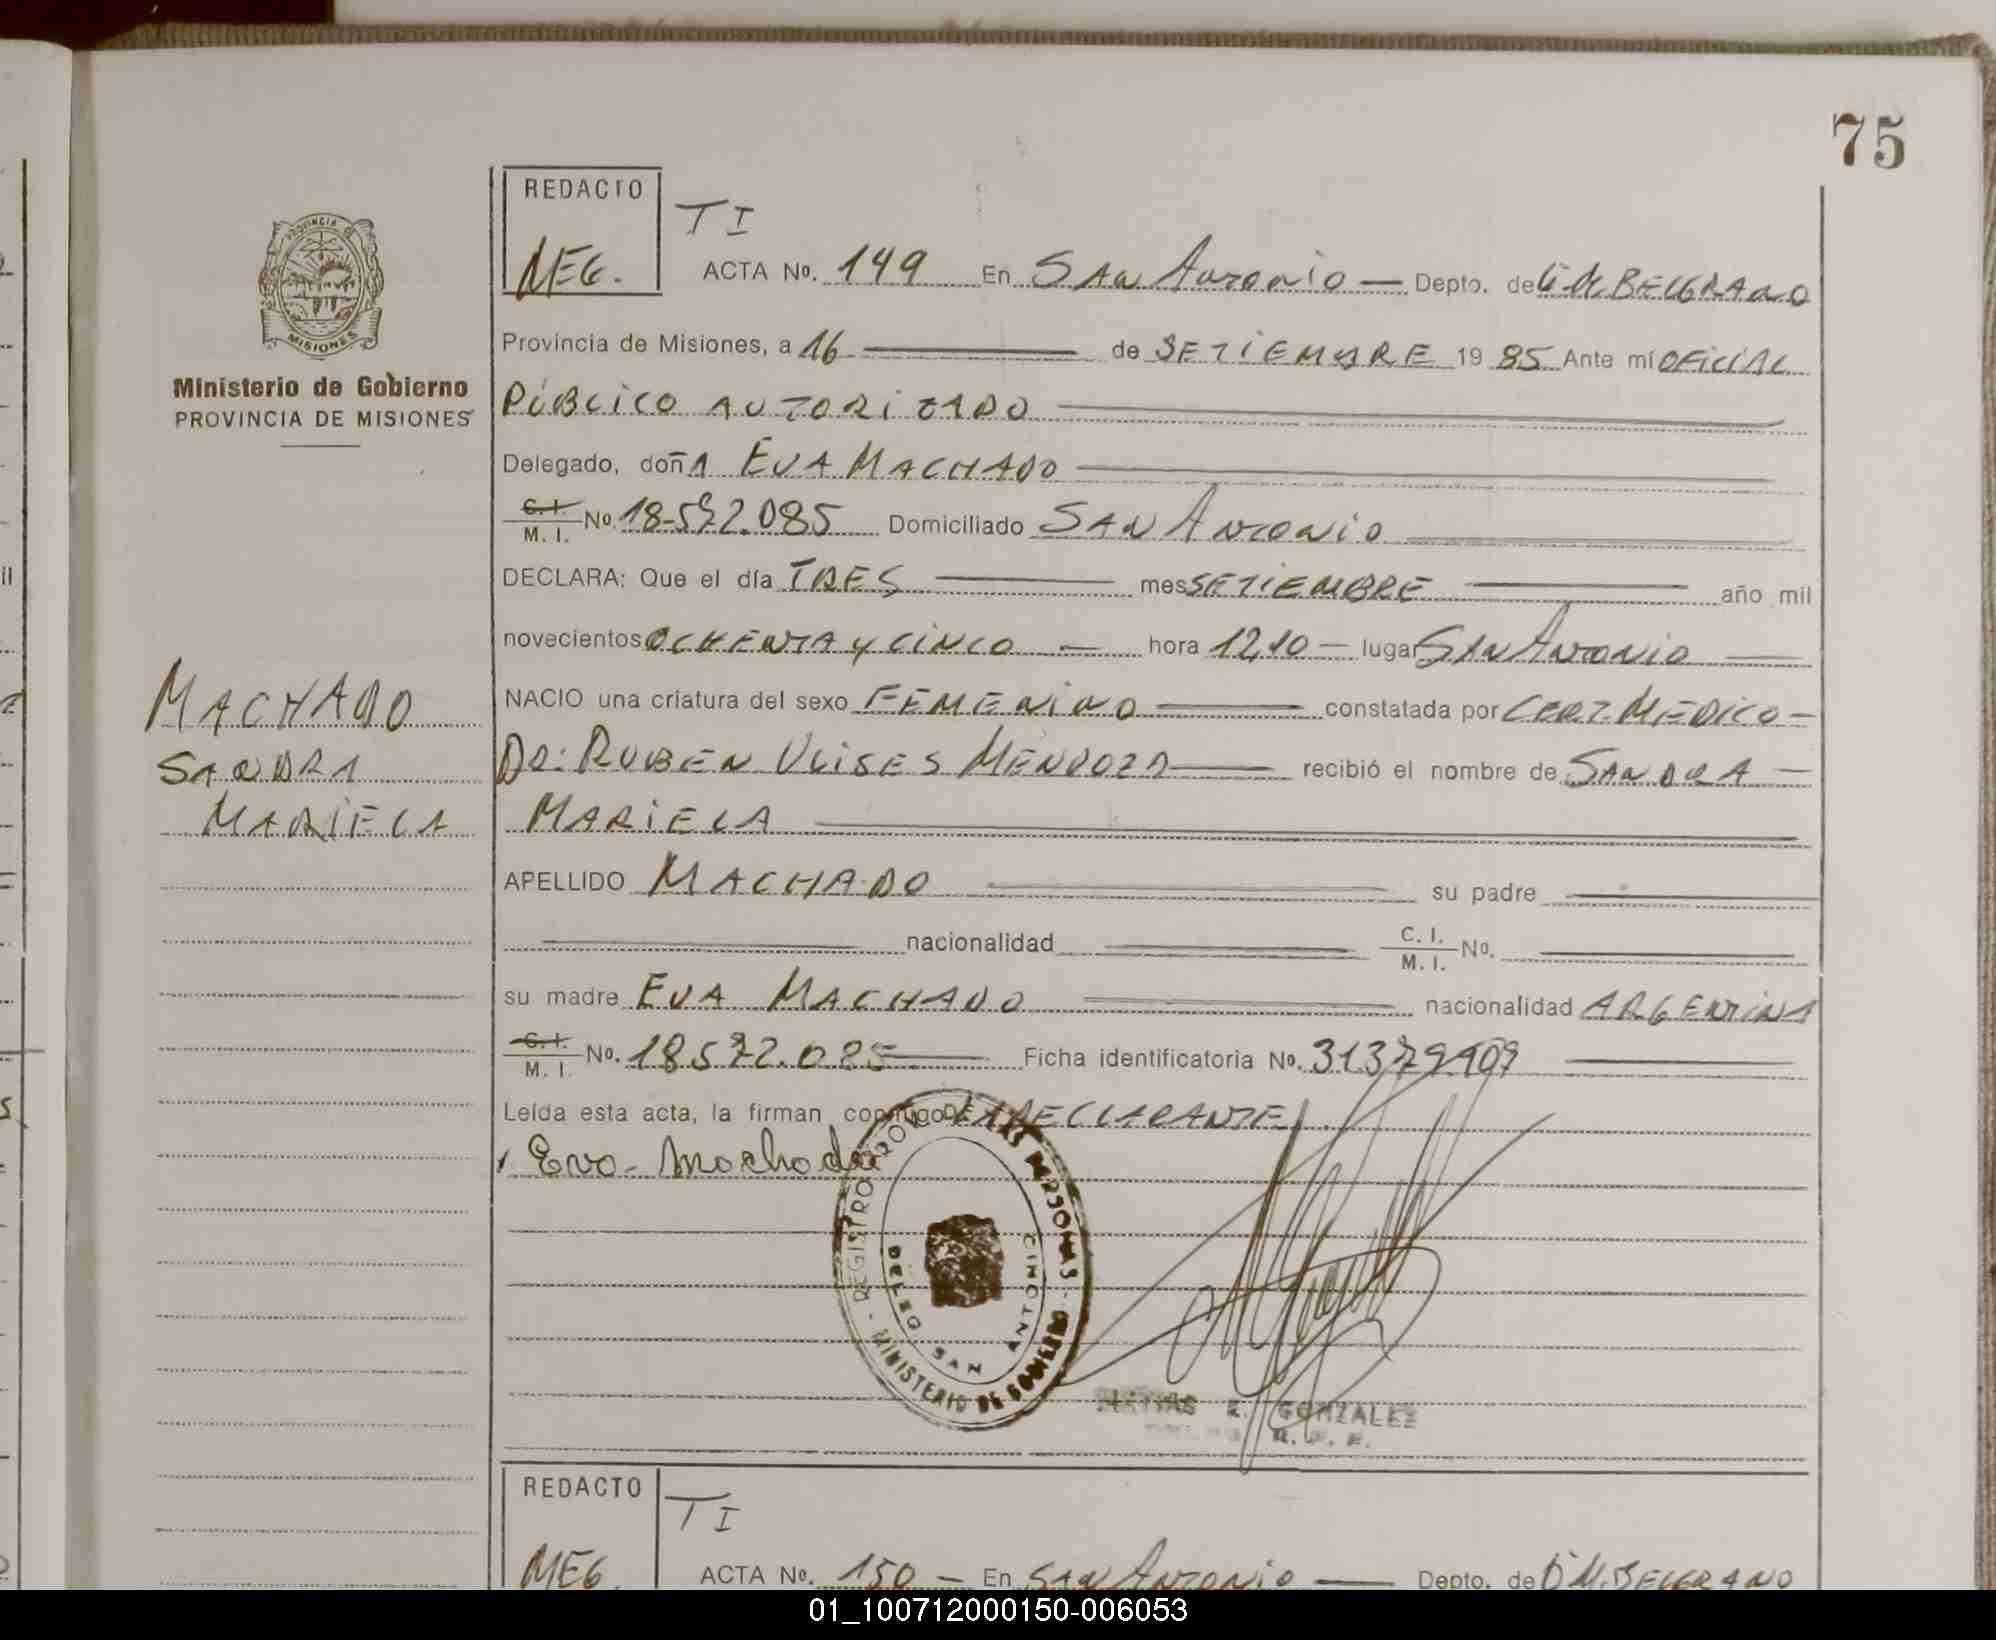 75
REDACTO
TI
MEG. ACTA Nº. 149 En SAN ANTONIO — Depto. de G. M. BELGRANO
PROVINCIA
MISIONES
Ministerio de Gobierno
PROVINCIA DE MISIONES
Provincia de Misiones, a 16 — de SETIEMBRE 1985 Ante mí OFICIAL
PÚBLICO AUTORIZADO —
Delegado, doñA EVA MACHADO —
C. I.
M. I. Nº 18.572.085 Domiciliado SAN ANTONIO —
DECLARA: Que el día TRES — mes SETIEMBRE — año mil
novecientos OCHENTA y CINCO — hora 12,10 — lugar SAN ANTONIO —
MACHADO
SANDRA
MARIELA
NACIO una criatura del sexo FEMENINO — constatada por CERT. MEDICO —
DR: RUBEN ULISES MENDOZA — recibió el nombre de SANDRA —
MARIELA —
APELLIDO MACHADO — su padre —
— nacionalidad — C. I.
M. I. Nº. —
su madre EVA MACHADO — nacionalidad ARGENTINA
C. I.
M. I. Nº. 18.572.085 — Ficha identificatoria Nº. 31379.909 —
Leída esta acta, la firman conmigo LA DECLARANTE
Eva - Machado
REGISTRO PROV. DE LAS PERSONAS - MINISTERIO DE GOBIERNO -
DELEG SAN ANTONIO
MATIAS E. GONZALEZ
REDACTO
TI
MEG. ACTA Nº. 150 — En SAN ANTONIO — Depto. de G. M. BELGRANO
01_100712000150-006053